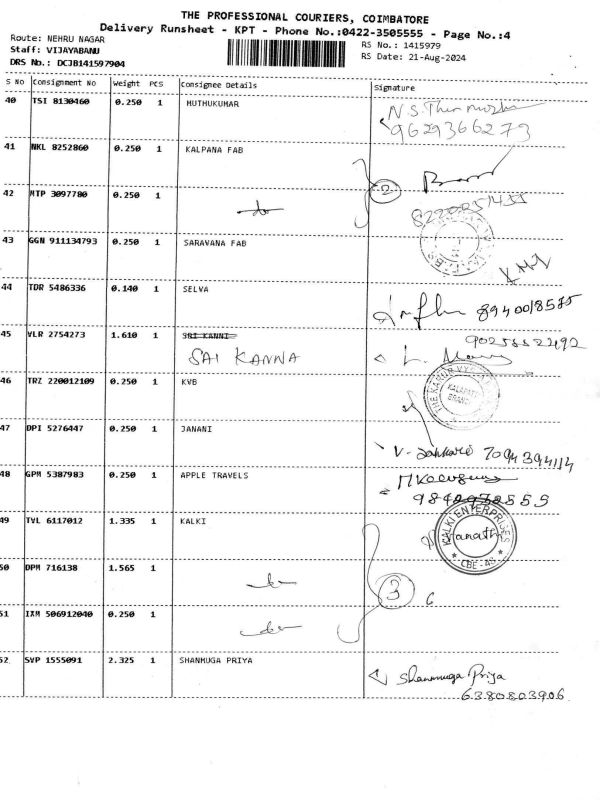 THE PROFESSIONAL COURIERS, COIMBATORE
Delivery Runsheet - KPT - Phone No.:0422-3505555 - Page No.:4
Route: NEHRU NAGAR
Staff: VIJAYABANU
DRS No.: DCJB141597904
RS No.: 1415979
RS Date: 21-Aug-2024
S No Consignment No Weight PCS Consignee Details Signature
40 TSI 8130460 0.250 1 MUTHUKUMAR
9629366273
41 NKL 8252860 0.250 1 KALPANA FAB
2
42 MTP 3097780 0.250 1 -do-
43 GGN 911134793 0.250 1 SARAVANA FAB
44 TDR 5486336 0.140 1 SELVA
8940018575
45 VLR 2754273 1.610 1 SRI KANNI
SAI KANNA
46 TRZ 220012109 0.250 1 KVB
THE KARUR VYSYA
KALAPATTI
BRANCH
47 DPI 5276447 0.250 1 JANANI
48 GPM 5387983 0.250 1 APPLE TRAVELS
49 TVL 6117012 1.335 1 KALKI
KALKI ENTERPRISES
CBE-48
50 DPM 716138 1.565 1 -do-
3
51 IXM 506912040 0.250 1 -do-
52 SVP 1555091 2.325 1 SHANMUGA PRIYA
Shanmuga Priya
6380803906